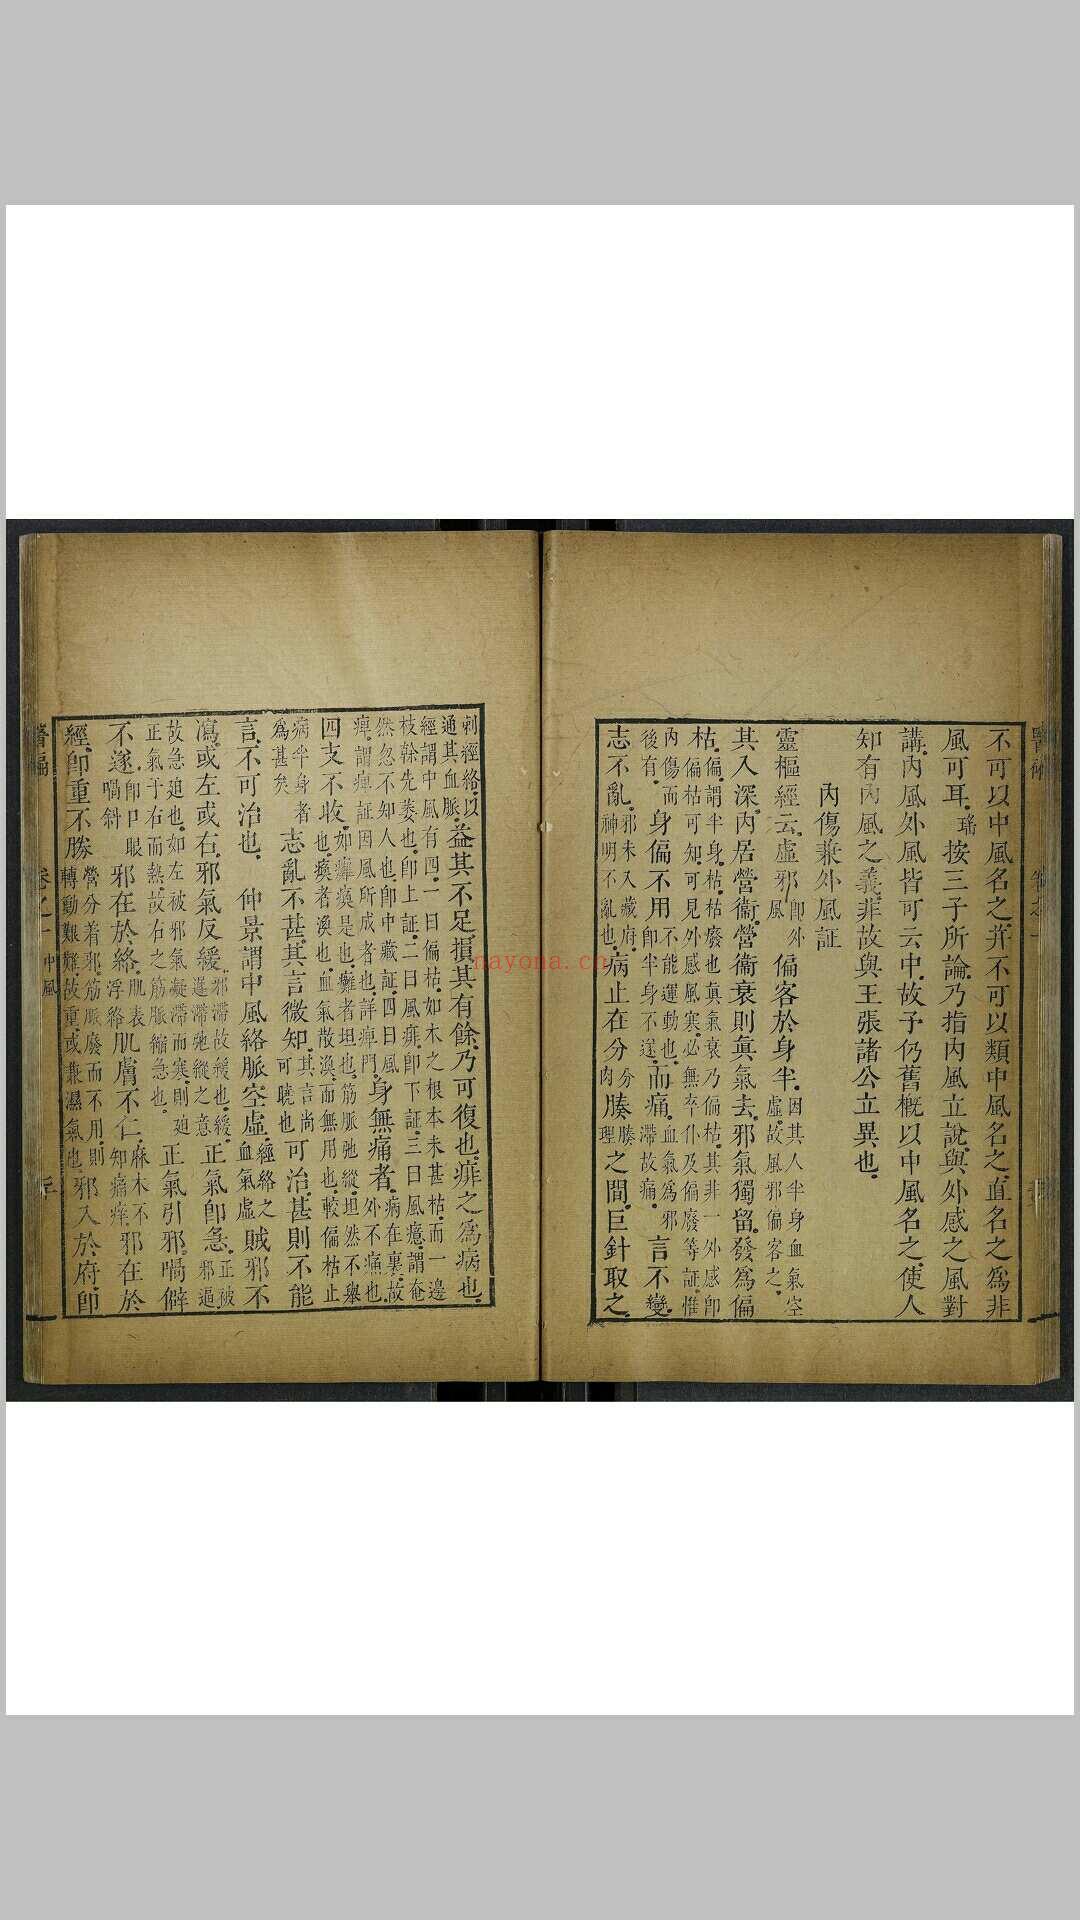 不可以中風名之并不可以類中風名之直名之爲非
風可耳瑤按三子所論乃指內風立說與外感之風對
講內風外風皆可云中故予仍舊概以中風名之使人
知有內風之義非故與王張諸公立異也
內傷兼外風証
靈樞經云虛邪卽外風偏客於身半因其人半身血氣空虛故風邪偏客之
其入深內居營衞營衞衰則眞氣去邪氣獨留發爲偏
枯偏謂半身枯枯廢也眞氣衰乃偏枯其非一外感卽偏枯可知可見外感風寒必無卒仆及偏廢等証惟
內傷而後有身偏不用卽半身不遂而痛血氣爲邪滯故痛言不變
志不亂邪未入藏府神明不亂也病止在分肉腠理之間巨針取之
刺經絡以通其血脈益其不足損其有餘乃可復也痱之爲病也
經謂中風有四一曰偏枯如木之根本未甚枯而一邊枝榦先萎也卽上証二曰風痱卽下証三曰風癔謂奄
然忽不知人也卽中藏証四曰風痺謂痺証因風所成者也詳痺門身無痛者病在裏故外不痛也
四支不收如癱瘓是也癱者坦也筋脈弛縱坦然不舉也瘓者渙也血氣散渙而無用也較偏枯止
病半身者爲甚矣志亂不甚其言微知其言尚可曉也可治甚則不能
言不可治也 仲景謂中風絡脈空虛經絡之血氣虛賊邪不
瀉或左或右邪氣反緩邪滯故緩也緩遲滯弛縱之意正氣卽急正被邪逼
故急廹也如左被邪氣凝滯而寒則廹正氣于右而熱故右之筋脈縮急也正氣引邪喎僻
不遂卽口眼喎斜邪在於絡肌表浮絡肌膚不仁麻木不知痛痒邪在於
經卽重不勝營分着邪筋脈廢而不用則轉動艱難故重或兼濕氣也邪入於府卽
醫編 卷之一 中風
nayona.cn